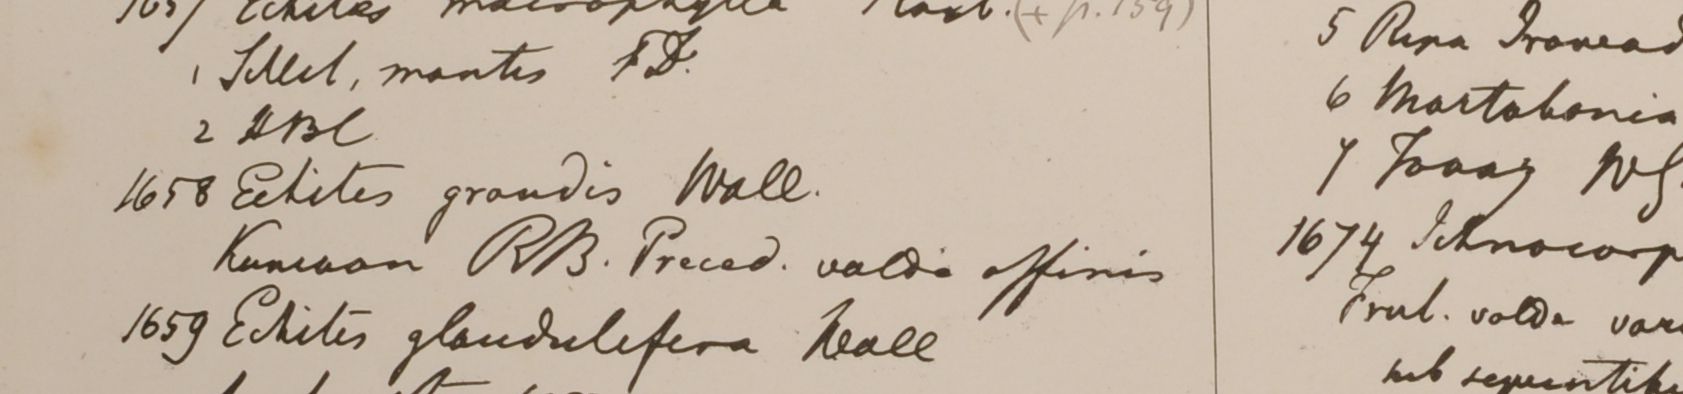 1657 Echites macrophylla Roxb. (+ p. 159)
1 Sillet, montes F.D.
2 HBC
1658 Echites grandis Wall.
Kumaon RB. Preced. valde affinis
1659 Echites glandulifera Wall
5 Ripa Irawad
6 Martabania
7 Tavoy WG.
1674 Ichnocarp
Frut. valde vari
sub sequentib